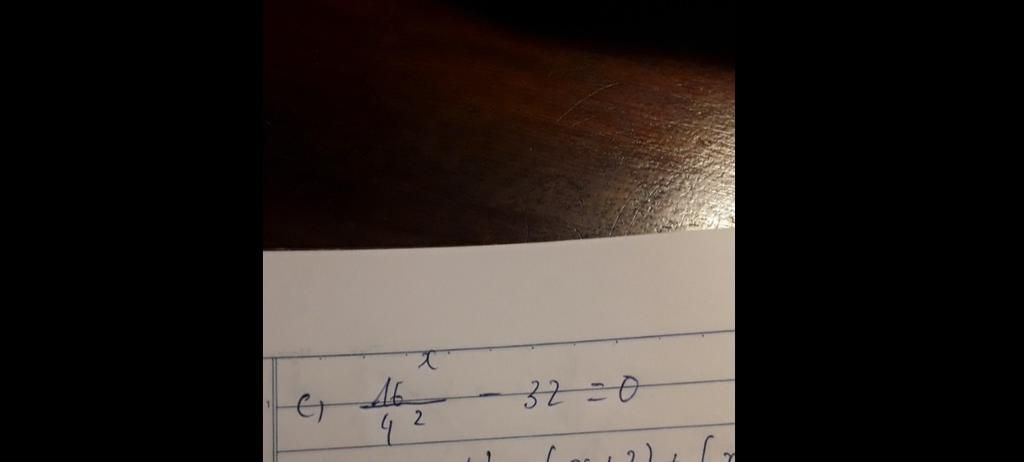 c, 16^x / 4^2 - 32 = 0